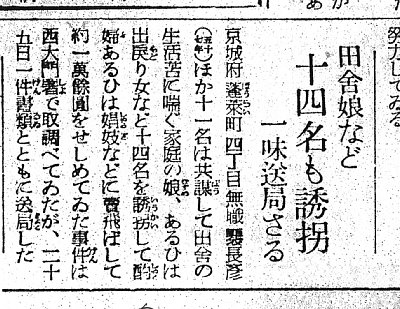 発力してゐる
田舎娘など
十四名も誘拐
一味送局さる
京城府蓬莱町四丁目無職 長彦
ほか十一名は共謀して田舎の
生活苦に喘ぐ家庭の娘、あるひは
出戻り女など十四名を誘拐して酌
婦あるひは娼妓などに賣飛ばして
約一萬餘圓をせしめてゐた事件は
西大門署で取調べてゐたが、二十
九日一件書類とともに送局した